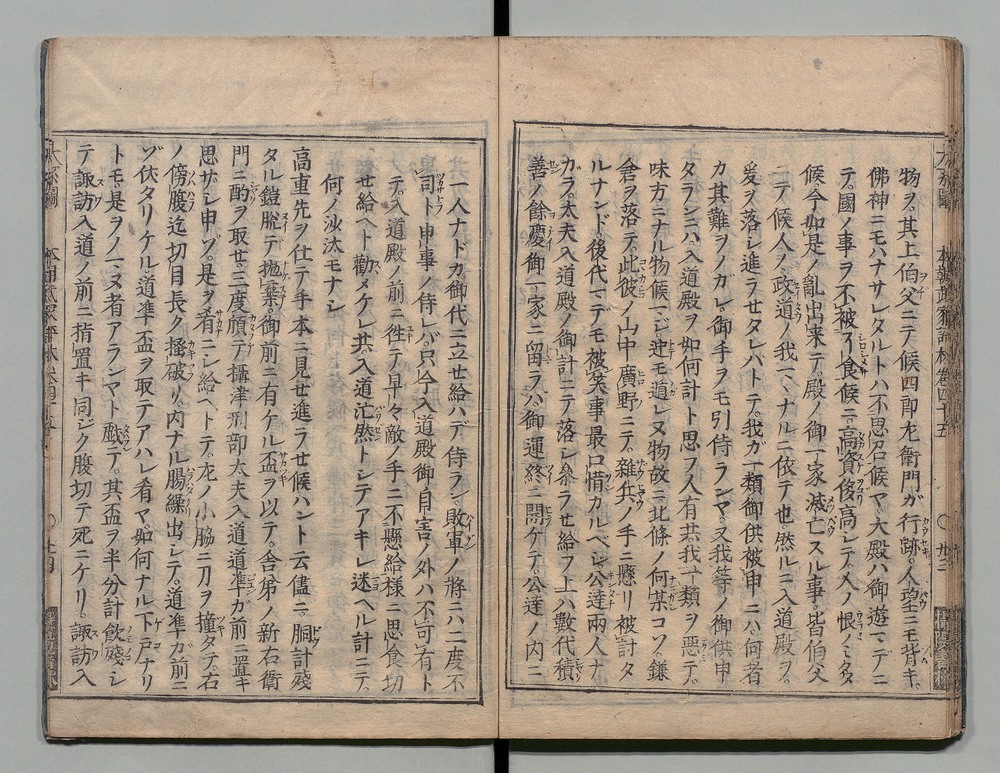 物ヲ。其上伯父ニテ候四郎左衛門ガ行跡。人望ニモ背キ。
佛神ニモハナサレタルトハ不思召候マ。大殿ハ御遊マデニ
テ。國ノ事ヲ不被候ニ。高資後高シテ。人ノ恨ノミタ
候。今如是ノ亂出來テ。殿ノ御一家滅亡スル事。皆伯父
ニテ候人ノ。政道ノ我マヽナルニ依テ也。然ルニ入道殿ヲ。
爰ヲ落シ進ラセタレバトテ。我ガ一類御供被申ニハ。何者
カ其難ヲノガレ。御手ヲモ引侍ランマ。又我等ノ御供申
タランニハ。入道殿ヲ如何計ト思フ人有共。我一類ヲ惡テ。
味方ニナル物候マジ。迚モ道レヌ物故ニ。北條ノ何某コソ。鎌
舍ヲ落テ。此彼ノ山中廣野ニテ。雜兵ノ手ニ懸リ被討タ
ルナンド。後代マデモ被笑事。最口惜カルベシ。公達兩人ナ
ガラ。太夫入道殿ノ御計ニテ。落シ參ラセ給フ上ハ。數代積
善ノ餘慶。御一家ニ留ラハ。御運終ニ開ケテ。公達ノ内ニ
一人ナドカ御代ニ立セ給ハデ侍ラン。敗軍ノ將ニハ二度不
司ト申事ノ侍レバ。只今入道殿御自害ノ外ハ不可有ト
テ。入道殿ノ前ニ徃テ。早々敵ノ手ニ不懸給様ニ。思食切
セ給ヘト勸メケレ共。入道茫然トシテアキレ迷ヘル計ニテ。
何ノ沙汰モナシ
高重先ヲ仕テ手本ニ見セ進ラセ候ハント云儘ニ。胴計殘
タル鎧脱テ抛棄。御前ニ有ケル盃ヲ以テ。舎弟ノ新右衛
門ニ酌ヲ取セ。三度傾テ。攝津刑部大夫入道道準カ前ニ置キ
思サシ申ゾ。是ヲ肴ニシ給ヘトテ。左ノ小脇ニ刀ヲ撞タテ。右
ノ傍腹迄切目長ク掻破リ。内ナル腸繰出シテ。道準ガ前ニ
ゾ伏タリケル。道準盃ヲ取テアハレ肴マ。如何ナル下戸ナリ
トモ。是ヲノマヌ者アランマト戯テ。其盃ヲ半分計飲殘シ
テ諏訪入道ノ前ニ指置キ。同ジク腹切テ死ニケリ。諏訪入